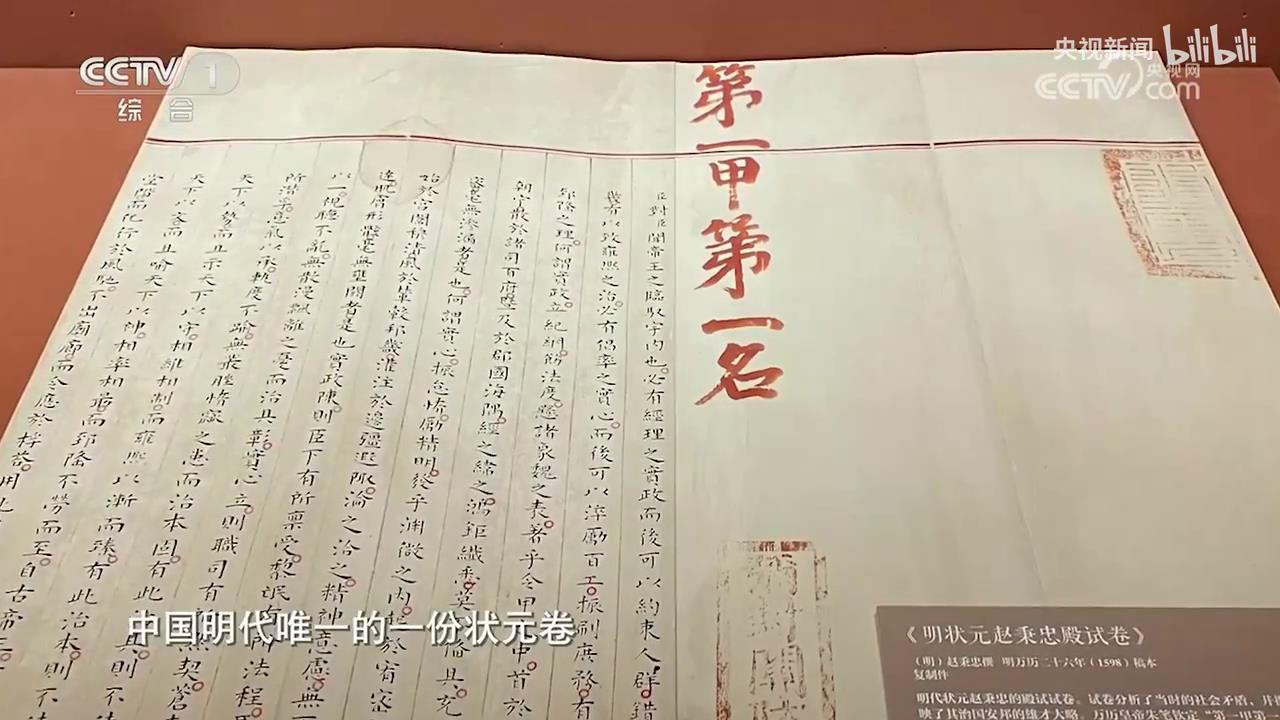 CCTV 1
综合
央视新闻 bilibili
央视网
CCTV com
第一甲第一名
臣對臣聞帝王之臨馭宇内也必有經理之實政而後可以約束人群錯
幾有以致雍熙之治必有倡率之實心而後可以淬勵百工振刷庶務有
郅隆之理何謂實政立紀綱飭法度懸諸象魏之表著乎令甲之中首於
朝宁散於諸司百府暨及於郡國海隅經之緯之鴻鉅纖悉莫不備具充
密毫無滲漏者是也何謂實心振怠惰勵精明發乎淵微之内起於宥密
始於宮闈穆清風於輦轂邦畿灌注於邊疆遐陬淪之洽之精神意慮無
達肌膚形骸毫無壅閼者是也實政陳則臣下有所禀受黎氓有所法程
以一視聽不亂無散漫飄離之憂而治具彰實心立則職司有所默契蒼
所潜孚意氣以承軌度不踰無叢脞惰窳之患而治本固有此治具則不
天下以勢而且示天下以守相維相制而雍熙以漸而臻有此治本則不
天下以文而且喻天下以神相率相勗而郅隆不勞而至自古帝王
堂階而化行於風馳不出廟廊而令應於桴答用此
中国明代唯一的一份状元卷
《明状元赵秉忠殿试卷》
（明）赵秉忠撰 明万历二十六年（1598）稿本
复制件
明代状元赵秉忠的殿试试卷。试卷分析了当时的社会矛盾，并
映了其治国安邦的雄才大略。万历皇帝朱笔钦定“第一甲第一